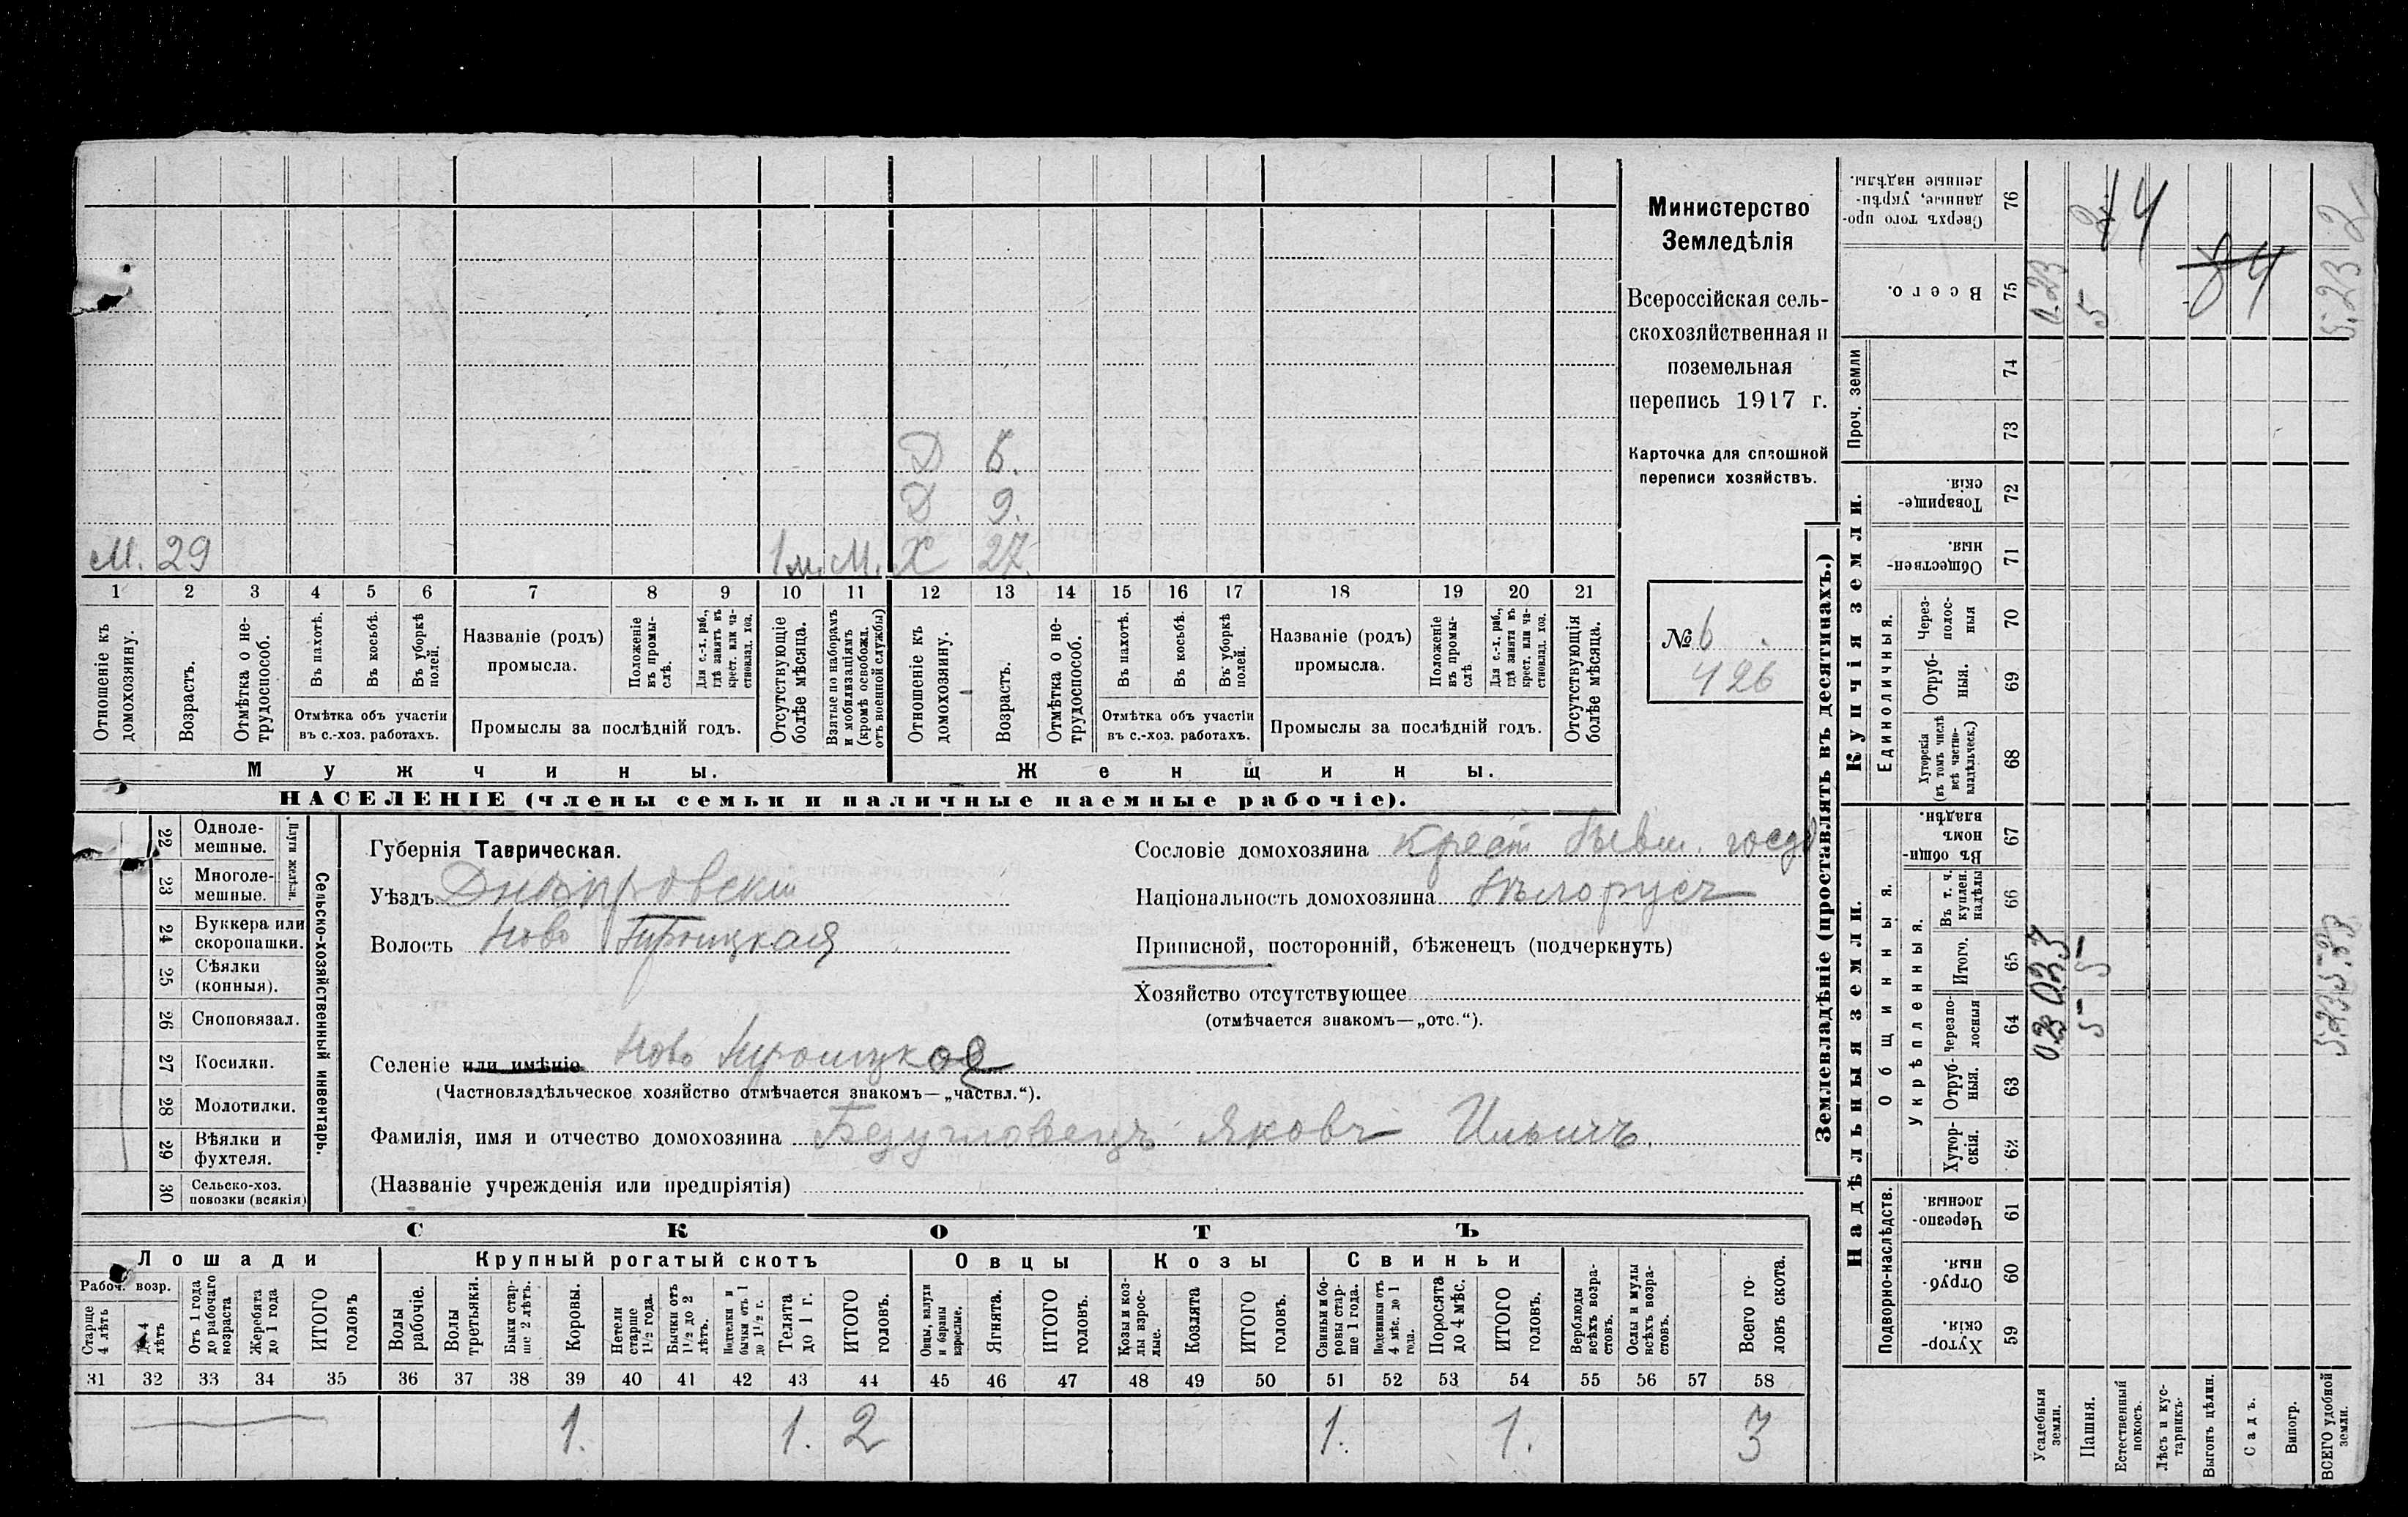 Министерство
Земледѣлія
Всероссійская сель-
скохозяйственная и
поземельная
перепись 1917 г.
Карточка для сплошной
переписи хозяйствъ.
№ 6
426
Д 6.
Д 9.
М. 29 1 м. М. Х 27.
1 2 3 4 5 6 7 8 9 10 11 12 13 14 15 16 17 18 19 20 21
Отношеніе къ домохозяину.
Возрастъ.
Отмѣтка о не-трудоспособ.
Въ пахотѣ.
Въ косьбѣ.
Въ уборкѣ полей.
Отмѣтка объ участіи
въ с.-хоз. работахъ.
Названіе (родъ)
промысла.
Положеніе въ промы-слѣ.
Для с.-х. раб., гдѣ занятъ въ крест. или ча-стновлад. хоз.
Промыслы за послѣдній годъ.
Отсутствующіе болѣе мѣсяца.
Взятые по наборамъ и мобилизаціямъ (кромѣ освобожд. отъ военной службы)
Отношеніе къ домохозяину.
Возрастъ.
Отмѣтка о не-трудоспособ.
Въ пахотѣ.
Въ косьбѣ.
Въ уборкѣ полей.
Отмѣтка объ участіи
въ с.-хоз. работахъ.
Названіе (родъ)
промысла.
Положеніе въ промы-слѣ
Для с.-х. раб., гдѣ занята въ крест. или ча-стновлад. хоз.
Промыслы за послѣдній годъ.
Отсутствующія болѣе мѣсяца.
Мужчины.
Женщины.
НАСЕЛЕНІЕ (члены семьи и наличные наемные рабочіе).
Сельско-хозяйственный инвентарь.
Плуги желѣзн.
22 Одноле-мешные.
23 Многоле-мешные.
24 Буккера или скоропашки.
25 Сѣялки (конныя).
26 Сноповязал.
27 Косилки.
28 Молотилки.
29 Вѣялки и фухтеля.
30 Сельско-хоз. повозки (всякія)
Губернія Таврическая.
Уѣздъ Днѣпровски
Волость Ново Троицкая
Селеніе или имѣніе Ново Троицкое
(Частновладѣльческое хозяйство отмѣчается знакомъ—„частвл.“).
Сословіе домохозяина крест бывш. госуд
Національность домохозяина бѣлорусъ
Приписной, посторонній, бѣженецъ (подчеркнуть)
Хозяйство отсутствующее
(отмѣчается знакомъ—„отс.“).
Фамилія, имя и отчество домохозяина Безугловецъ Яковъ Ильичъ.
(Названіе учрежденія или предпріятія)
СКОТЪ
Лошади
Крупный рогатый скотъ
Овцы
Козы
Свиньи
Рабоч. возр.
Старше 4 лѣтъ
До 4 лѣтъ
Отъ 1 года до рабочаго возраста
Жеребята до 1 года
ИТОГО головъ
Волы рабочіе.
Волы третьяки.
Быки стар-ше 2 лѣтъ.
Коровы.
Нетели старше 1½ года.
Бычки отъ 1½ до 2 лѣтъ.
Подтелки и бычки отъ 1 до 1½ г.
Телята до 1 г.
ИТОГО головъ.
Овцы, валухи и бараны взрослые.
Ягнята.
ИТОГО головъ.
Козы и коз-лы взрос-лые.
Козлята
ИТОГО головъ.
Свиньи и бо-ровы стар-ше 1 года.
Подсвинки отъ 4 мѣс. до 1 года.
Поросята до 4 мѣс.
ИТОГО головъ.
Верблюды всѣхъ возра-стовъ.
Ослы и мулы всѣхъ возра-стовъ.
Всего го-ловъ скота.
31 32 33 34 35 36 37 38 39 40 41 42 43 44 45 46 47 48 49 50 51 52 53 54 55 56 57 58
1. 1. 2 1. 1. 3
Землевладѣніе (проставлять въ десятинахъ.)
Надѣльныя земли.
Купчія земли.
Проч. земли
Подворно-наслѣдств.
Общинныя.
Укрѣпленныя.
Единоличныя.
Хутор-скія. 59
Отруб-ныя. 60
Черезпо-лосныя. 61
Хутор-скія. 62
Отруб-ныя. 63
Черезпо-лосныя 64
Итого. 65
Въ т. ч. куплен. надѣлы 66
Въ общин-номъ владѣн. 67
Хуторскія (въ томъ числѣ всѣ частно-владѣльческ.) 68
Отруб-ныя. 69
Через-полос-ныя 70
Обществен-ныя. 71
Товарище-скія. 72
73
74
Всего. 75
Сверхъ того про-данные, укрѣп-ленные надѣлы. 76
Усадебныя земли.
Пашня.
Естественный покосъ.
Лѣсъ и кус-тарникъ.
Выгонъ цѣлин.
Садъ.
Виногр.
ВСЕГО удобной земли.
0.23 0.23 0.23
5 5 5
5.23 5.23 5.23 2